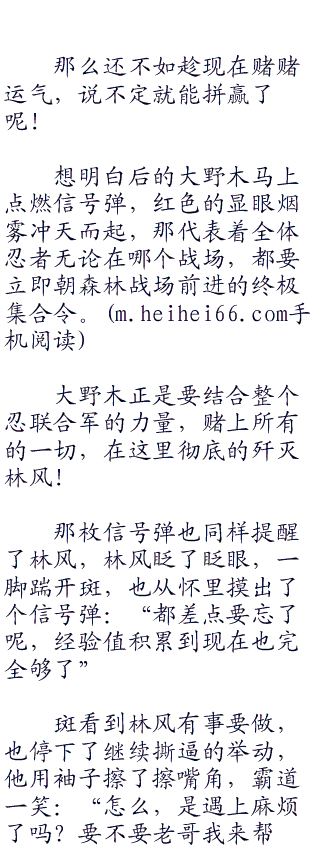 那么还不如趁现在赌赌
运气，说不定就能拼赢了
呢！
想明白后的大野木马上
点燃信号弹，红色的显眼烟
雾冲天而起，那代表着全体
忍者无论在哪个战场，都要
立即朝森林战场前进的终极
集合令。(m.heihei66.com手
机阅读)
大野木正是要结合整个
忍联合军的力量，赌上所有
的一切，在这里彻底的歼灭
林风！
那枚信号弹也同样提醒
了林风，林风眨了眨眼，一
脚踹开斑，也从怀里摸出了
个信号弹：“都差点要忘了
呢，经验值积累到现在也完
全够了”
斑看到林风有事要做，
也停下了继续撕逼的举动，
他用袖子擦了擦嘴角，霸道
一笑：“怎么，是遇上麻烦
了吗？要不要老哥我来帮